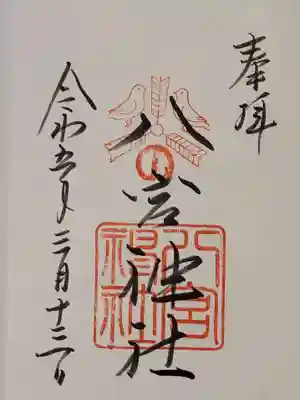 奉拝
八宮神社
八宮神社
令和五年三月十二日